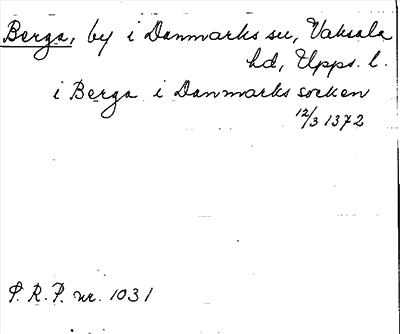 Berga, by i Danmarks sn, Vaksala
hd, Upps. l.
i Berga i Danmarks socken
12/3 1372
P. R. P. nr. 1031